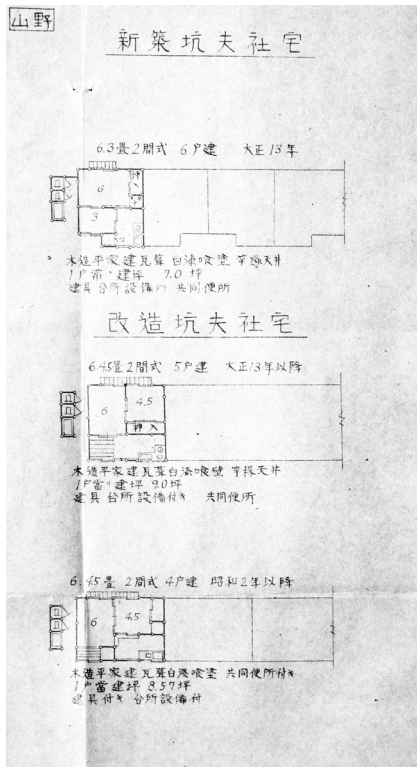 山野
新築坑夫社宅
6.3畳2間式 6戸建 大正13年
押入
6
3
入口
木造平家建瓦葺白漆喰塗竿縁天井
1戸當り建坪 7.0坪
建具台所設備付 共同便所
改造坑夫社宅
6.45畳2間式 5戸建 大正13年以降
6
4.5
押入
木造平家建瓦葺白漆喰壁竿縁天井
1戸當り建坪 9.0坪
建具台所設備付キ 共同便所
6.45畳 2間式 4戸建 昭和2年以降
6
4.5
木造平家建瓦葺白漆喰塗 共同便所付キ
1戸當建坪 8.57坪
建具付キ 台所設備付